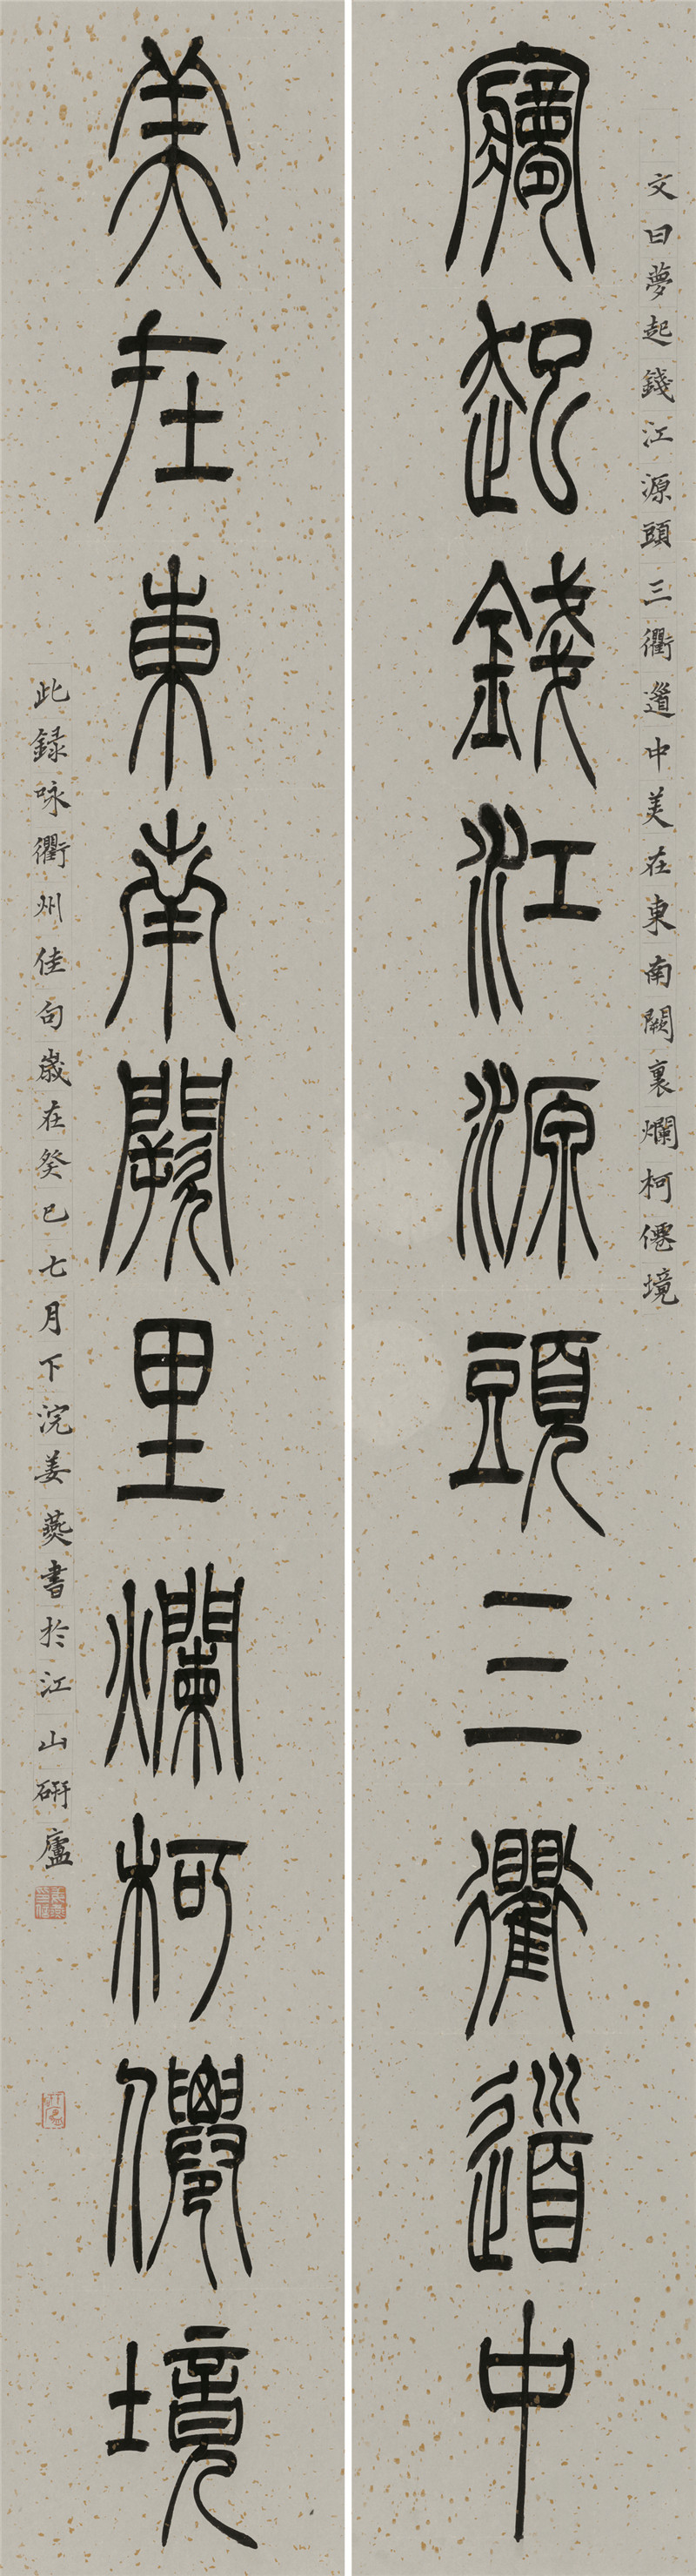 文曰夢起錢江源頭三衢道中美在東南闕裏爛柯僊境
夢起錢江源頭三衢道中
美在東南闕里爛柯僊境
此録咏衢州佳句歲在癸巳七月下浣姜燕書於江山硏廬